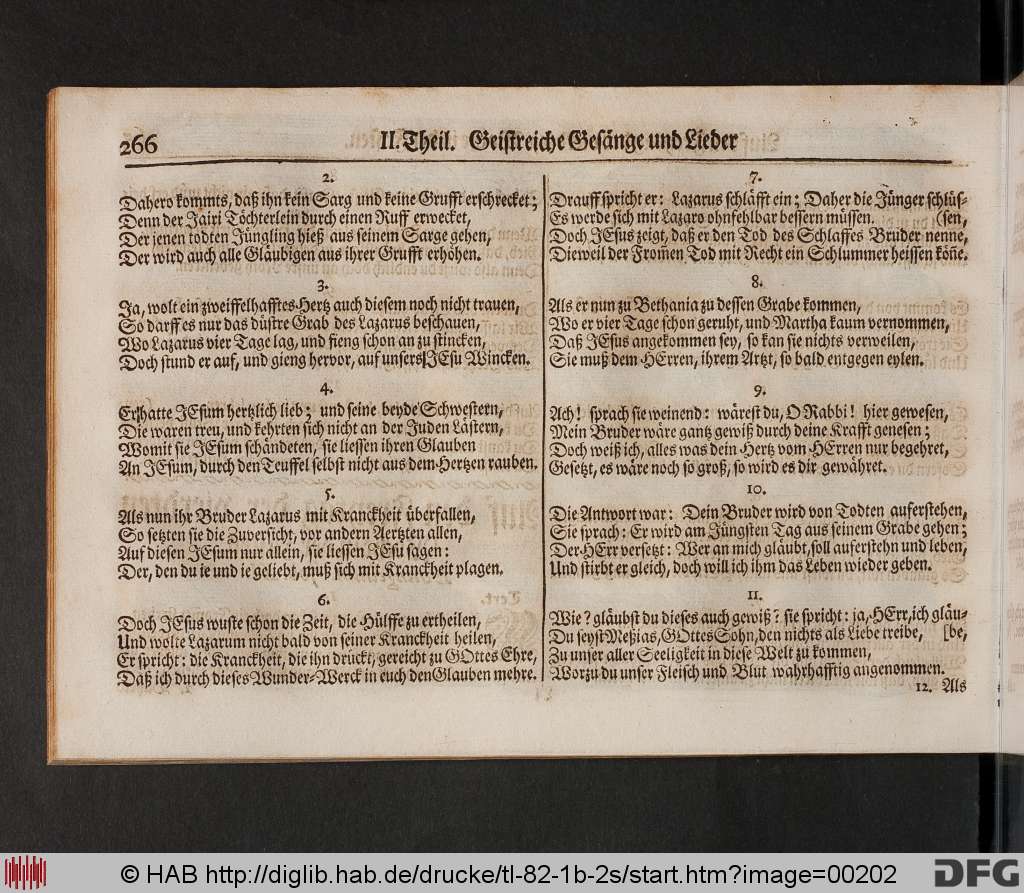 266
II. Theil. Geistreiche Gesänge und Lieder
2.
Dahero kommts, daß ihn kein Sarg und keine Grufft erschrecket;
Denn der Jairi Töchterlein durch einen Ruff erwecket,
Der jenen todten Jüngling hieß aus seinem Sarge gehen,
Der wird auch alle Gläubigen aus ihrer Grufft erhöhen.
3.
Ja, wolt ein zweiffelhafftes Hertz auch diesem noch nicht trauen,
So darff es nur das düstre Grab des Lazarus beschauen,
Wo Lazarus vier Tage lag, und fieng schon an zu stincken,
Doch stund er auf, und gieng hervor, auf unsers JEsu Wincken.
4.
Er hatte JEsum hertzlich lieb; und seine beyde Schwestern,
Die waren treu, und kehrten sich nicht an der Juden Lästern,
Womit sie JEsum schändeten, sie liessen ihren Glauben
An JEsum, durch den Teuffel selbst nicht aus dem Hertzen rauben.
5.
Als nun ihr Bruder Lazarus mit Kranckheit überfallen,
So setzten sie die Zuversicht, vor andern Aertzten allen,
Auf diesen JEsum nur allein, sie liessen JEsu sagen:
Der, den du ie und ie geliebt, muß sich mit Kranckheit plagen.
6.
Doch JEsus wuste schon die Zeit, die Hülffe zu ertheilen,
Und wolte Lazarum nicht bald von seiner Kranckheit heilen,
Er spricht: die Kranckheit, die ihn drückt, gereicht zu GOttes Ehre,
Daß ich durch dieses Wunder-Werck in euch den Glauben mehre.
7.
Drauff spricht er: Lazarus schläfft ein; Daher die Jünger schlüs-
Es werde sich mit Lazaro ohnfehlbar bessern müssen. (sen,
Doch JEsus zeigt, daß er den Tod des Schlaffes Bruder nenne,
Dieweil der From̃en Tod mit Recht ein Schlummer heissen köñe.
8.
Als er nun zu Bethania zu dessen Grabe kommen,
Wo er vier Tage schon geruht, und Martha kaum vernommen,
Daß JEsus angekommen sey, so kan sie nichts verweilen,
Sie muß dem HErren, ihrem Artzt, so bald entgegen eylen.
9.
Ach! sprach sie weinend: wärest du, O Rabbi! hier gewesen,
Mein Bruder wäre gantz gewiß durch deine Krafft genesen;
Doch weiß ich, alles was dein Hertz vom HErren nur begehret,
Gesetzt, es wäre noch so groß, so wird es dir gewähret.
10.
Die Antwort war: Dein Bruder wird von Todten auferstehen,
Sie sprach: Er wird am Jüngsten Tag aus seinem Grabe gehen;
Der HErr versetzt: Wer an mich gläubt, soll auferstehn und leben,
Und stirbt er gleich, doch will ich ihm das Leben wieder geben.
11.
Wie? gläubst du dieses auch gewiß? sie spricht: ja, HErr, ich gläu-
Du seyst Meßias, GOttes Sohn, den nichts als Liebe treibe, [be,
Zu unser aller Seeligkeit in diese Welt zu kommen,
Worzu du unser Fleisch und Blut wahrhafftig angenommen.
12. Als
© HAB http://diglib.hab.de/drucke/tl-82-1b-2s/start.htm?image=00202
DFG